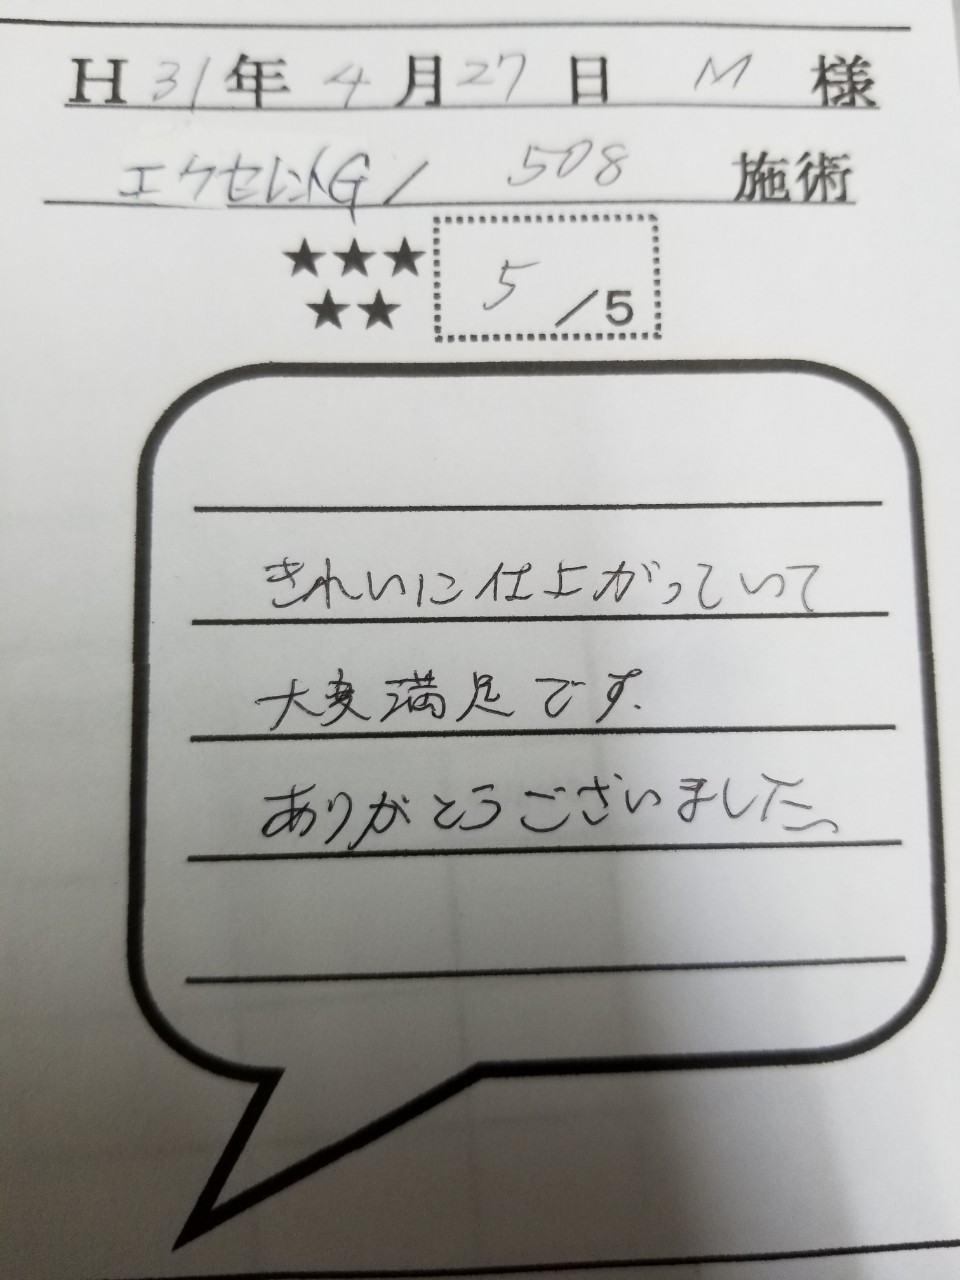 H31年4月27日 M 様
エクセレントG/ 508 施術
★★★
★★
5/5
きれいに仕上がっていて
大変満足です.
ありがとうございました。